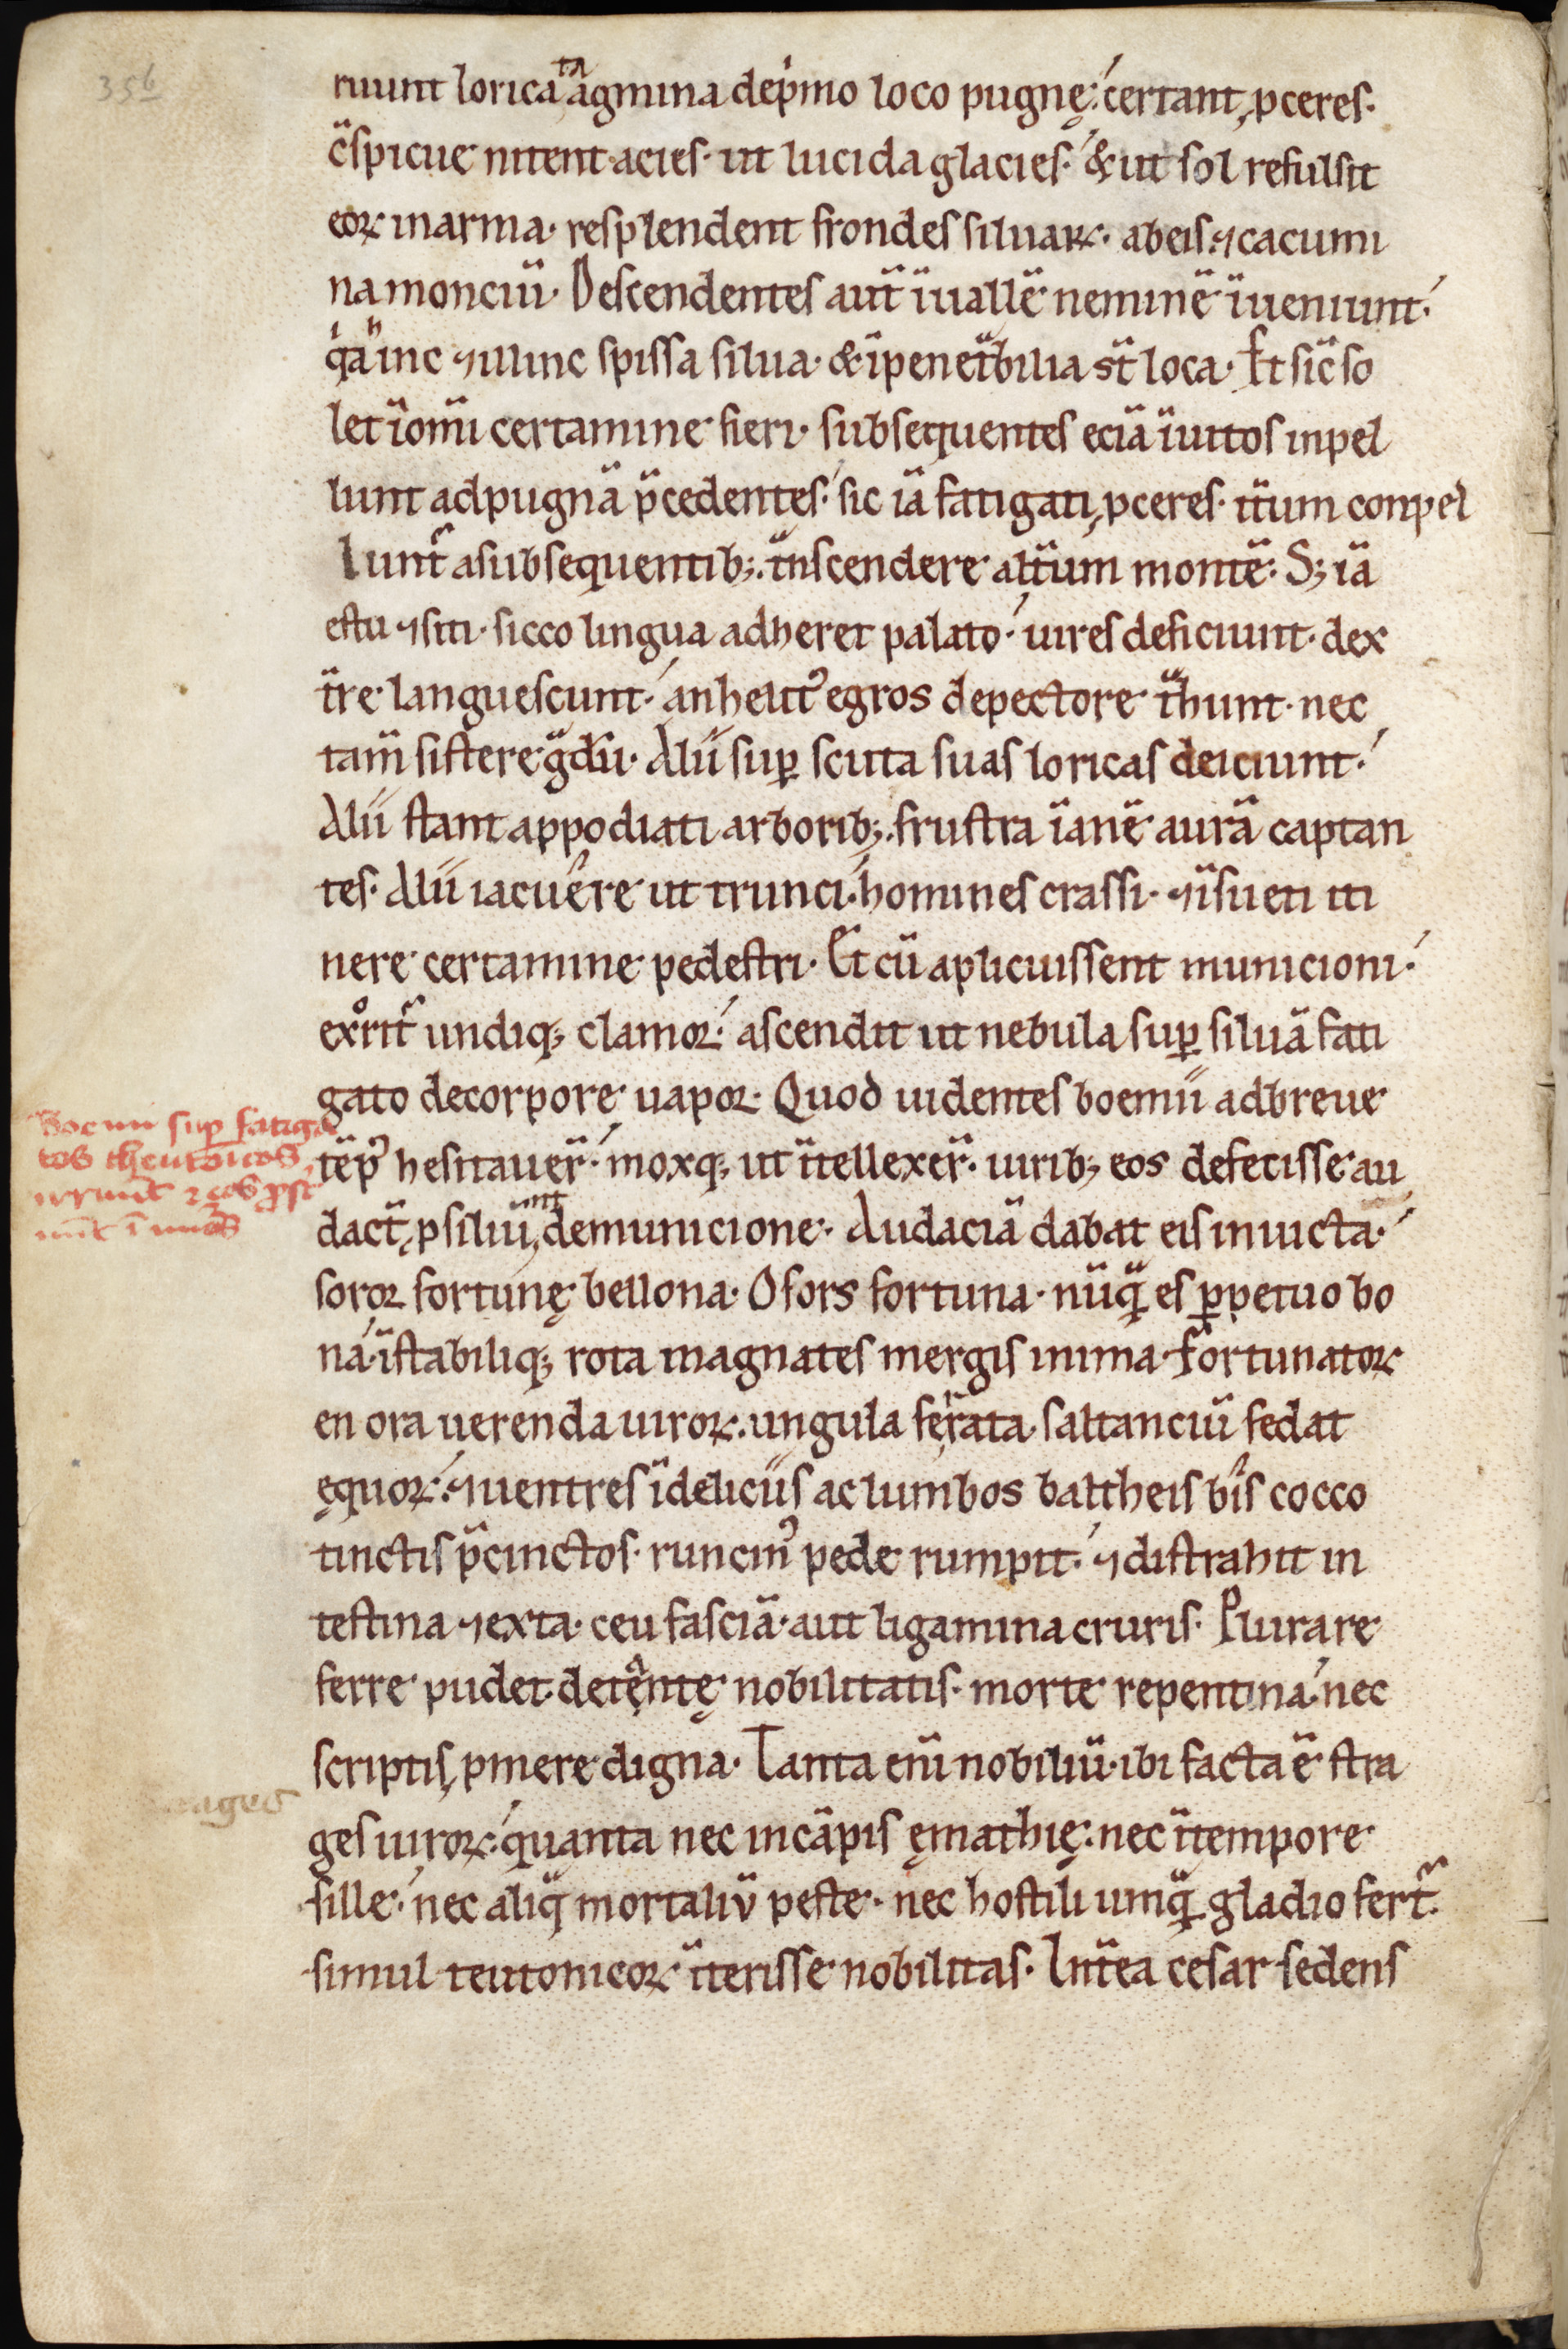 35b
ruunt loricataagmina dep̍mo loco pugnę: certant, pceres·
c̄spicue nitent acies· ut lucida glacies· & ut sol refulsit
eoꝝ in arma· resplendent frondes siluaꝝ· ab eis· ⁊ cacumi
na monciū· Descendentes aut̄ ī uallē neminē īueniunt·
q̍a hinc ⁊ illinc spissa silua· & īpenet̄bilia st̄ loca· Et sic̄ so
let ī om̄i certamine fieri· subsequentes eciā īuitos inpel
lunt ad pugnā p̄cedentes· sic iā fatigati, pceres· it̄um conpel
lunt᷑ a subsequentib;· t̄nscendere alt̄um montē· S; iā
estu ⁊ siti· sicco lingua adheret palato· uires deficiunt· dex
t̄re languescunt· anhelit᷒ egros de pectore t̄hunt· nec
tam̄ sistere g̈dū· Alii suꝑ scuta suas loricas deiciunt·
Alii stant appodiati arborib;· frustra īanē aurā captan
tes· Alii iacuere ut trunci· homines crassi· ⁊ īsueti iti
nere certamine pedestri· Et cū aplicuissent municioni·
exorit᷑ undiq; clamor· ascendit ut nebula suꝑ siluā fati
gato de corpore uapor· Quod uidentes boemii ad breue
tēp᷒ hesitauer̄· moxq; ut ītellexer̄· uirib; eos defecisse au
dact̄, psiliūnt, de municione· Audaciā dabat eis inuicta·
soror fortunę bellona· O fors fortuna· nūq̄ es ꝑpetuo bo
na· īstabiliq; rota magnates mergis in ima· Fortunatoꝝ
en ora uerenda uiroꝝ· ungula ferrata· saltanciū fedat
ęquoꝝ· ⁊ uentres ī deliciis ac lumbos baltheis bis cocco
tinctis p̄cinctos· runcin᷒ pede rumpit· ⁊ distrahit in
testina ⁊ exta· ceu fasciā· aut ligamina cruris· Plura re
ferre pudet· de tantę nobilitatis· morte repentina· nec
scriptis, pmere digna· Tanta eni̅ nobiliū· ibi facta ē stra
ges uiroꝝ· quanta nec in cāpis ęmathię: nec ī tempore
sille· nec aliq̄ mortaliū peste· nec hostili umq̄ gladio fert᷑·
simul teutonicoꝝ īterisse nobilitas· Int̄ea cesar sedens
Boemi suꝑ fatiga
tos theutonicos